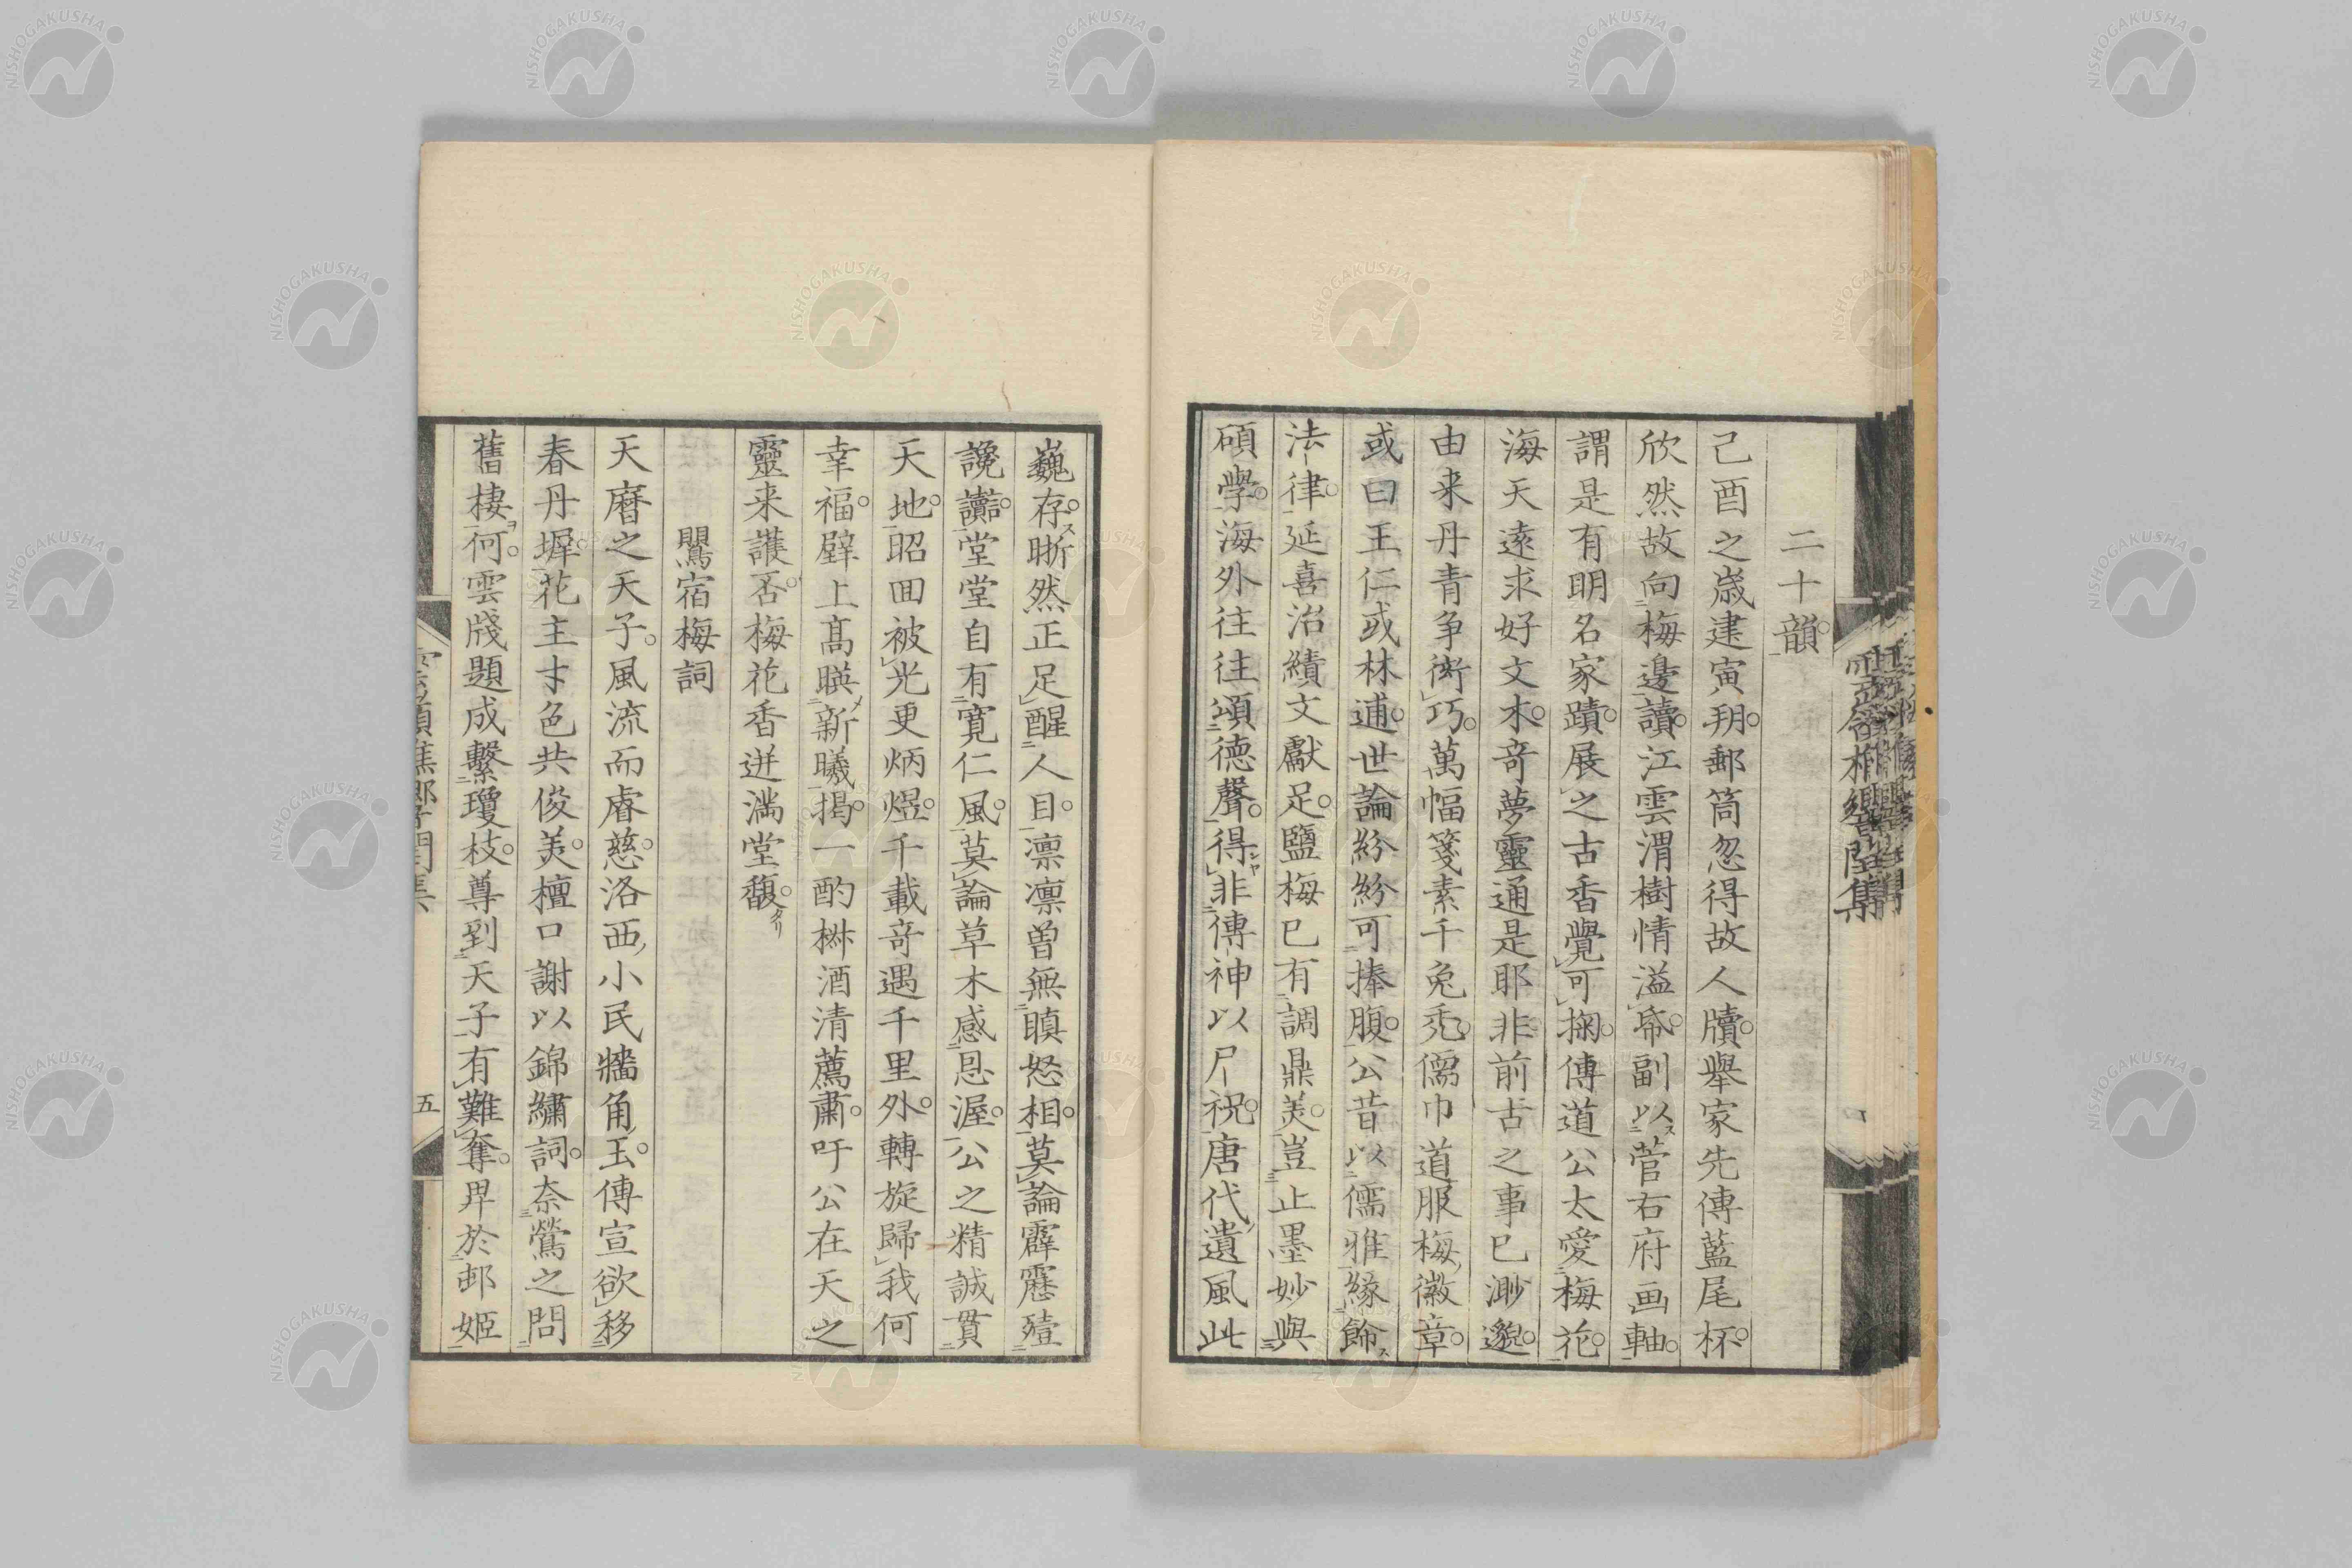 二十韻
己酉之歳建寅朔郵筒忽得故人牘擧家先傳藍尾杯
欣然故向梅邊讀江雲渭樹情溢帋副以菅右府画軸
謂是有明名家蹟展之古香覺可掬傳道公太愛梅花
海天遠求好文木奇夢靈通是耶非前古之事已渺邈
由来丹青争衒巧萬幅箋素千兔禿儒巾道服梅徽章
或曰王仁或林逋世論紛紛可捧腹公昔以儒雅緣飾
法律延喜治績文獻足鹽梅已有調鼎美豈止墨妙與
碩學海外往往頌德聲得非傳神以尸祝唐代遺風此
巍存晰然正足醒人目凛凛曽無瞋怒相莫論霹靂殪
讒讟堂堂自有寛仁風莫論草木感恩渥公之精誠貫
天地昭回被光更炳煜千載奇遇千里外轉旋歸我何
幸福壁上高暎新曦掲一酌椕酒清薦肅吁公在天之
靈来護否梅花香迸満堂馥
鸎宿梅詞
天暦之天子風流而睿慈洛西小民牆角玉傳宣欲移
春丹墀花主才色共俊美檀口謝以錦繡詞奈鶯之問
舊棲何雲牋題成繫瓊枝尊到天子有難奪畀於邨姬
五
NISHOGAKUSHA